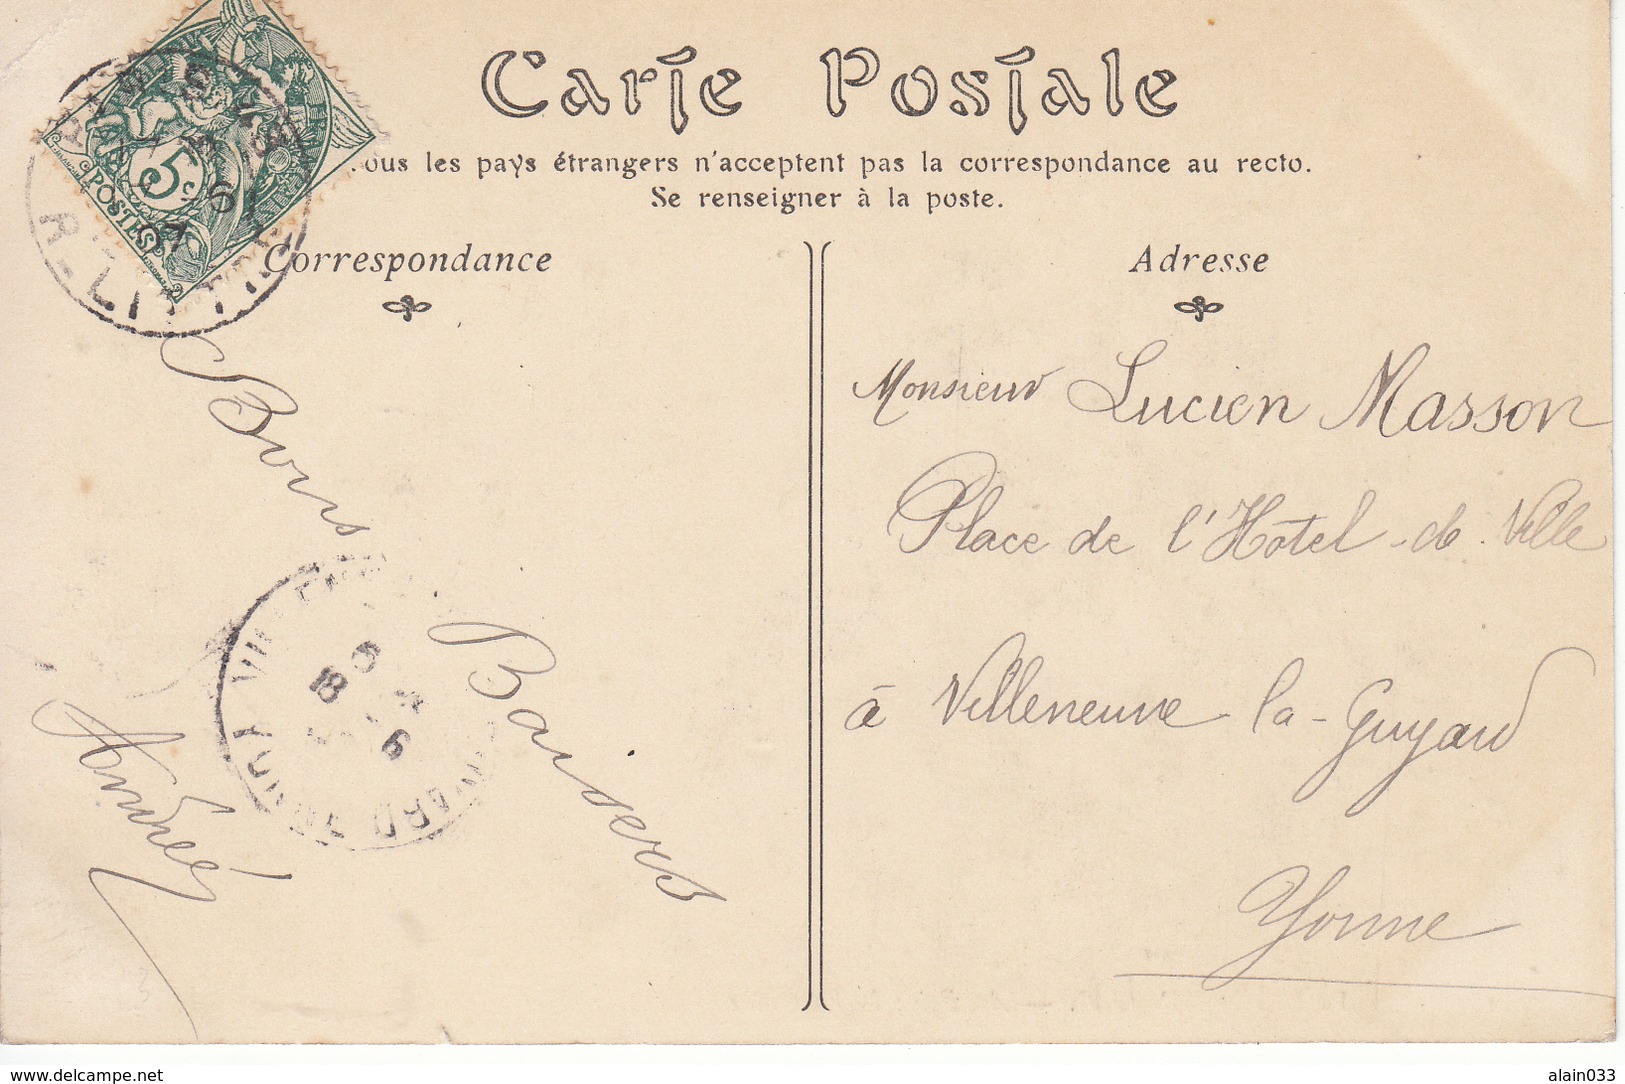 Carte Postale
ous les pays étrangers n'acceptent pas la correspondance au recto.
Se renseigner à la poste.
5c
POSTES
6
07
R. LITTRÉ
Correspondance
Adresse
Bons
Baisers
Andrée
18
6
Monsieur Lucien Masson
Place de l'Hôtel-de-Ville
à Villeneuve-la-Guyard
Yonne
www.delcampe.net
alain033